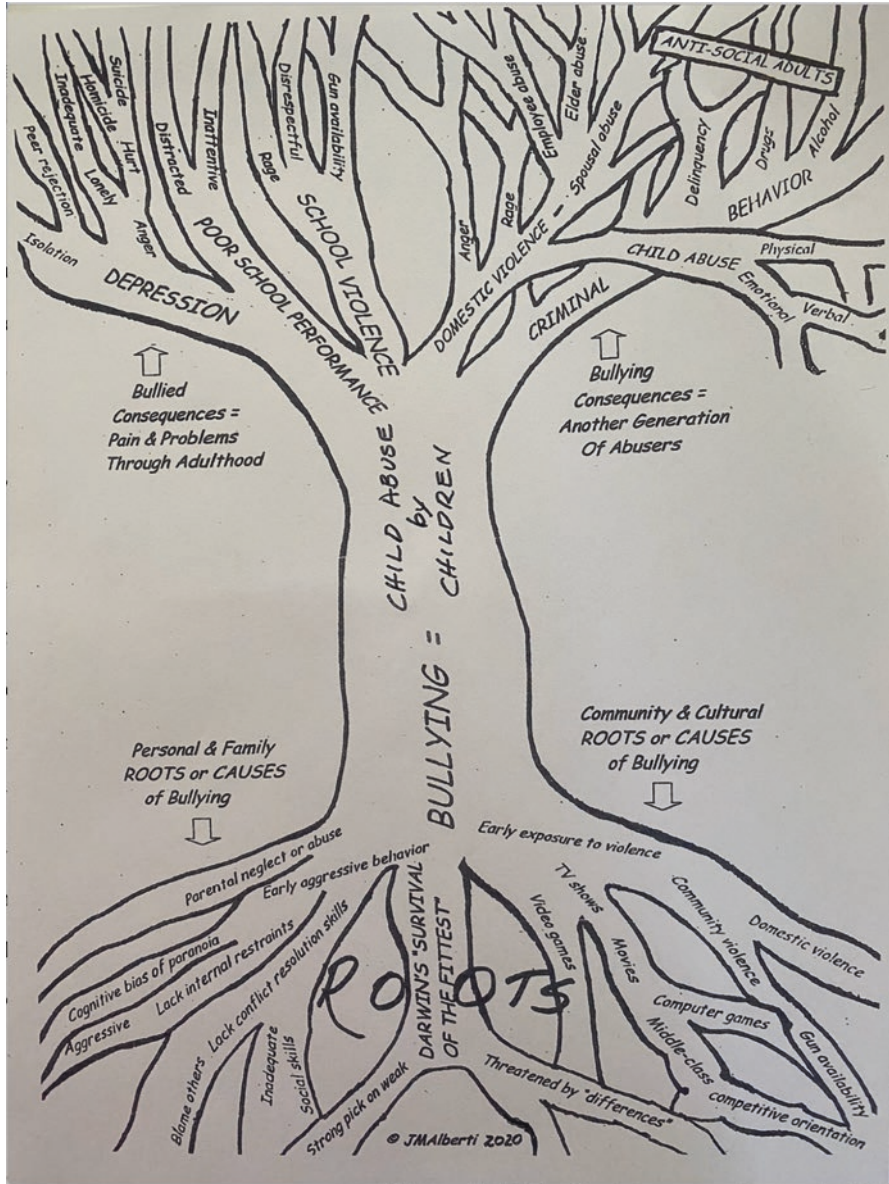 Suicide
Homicide
Inadequate
Peer rejection
Isolation
Lonely
Hurt
Anger
DEPRESSION
Distracted
Inattentive
POOR SCHOOL PERFORMANCE
Rage
Disrespectful
Gun availability
SCHOOL VIOLENCE
Anger
Rage
Employee abuse
Elder abuse
Spousal abuse
DOMESTIC VIOLENCE -
ANTI-SOCIAL ADULTS
Delinquency
Drugs
Alcohol
CRIMINAL
BEHAVIOR
CHILD ABUSE
Physical
Emotional
Verbal
Bullied
Consequences =
Pain & Problems
Through Adulthood
Bullying
Consequences =
Another Generation
Of Abusers
CHILD ABUSE
by
CHILDREN
BULLYING =
Personal & Family
ROOTS or CAUSES
of Bullying
Community & Cultural
ROOTS or CAUSES
of Bullying
Parental neglect or abuse
Early aggressive behavior
Cognitive bias of paranoia
Aggressive
Lack internal restraints
Lack conflict resolution skills
Blame others
Inadequate
Social skills
Strong pick on weak
ROOTS
DARWIN'S "SURVIVAL
OF THE FITTEST"
Early exposure to violence
TV shows
Video games
Movies
Community violence
Domestic violence
Computer games
Gun availability
Middle-class competitive orientation
Threatened by "differences"
© JMAlberti 2020